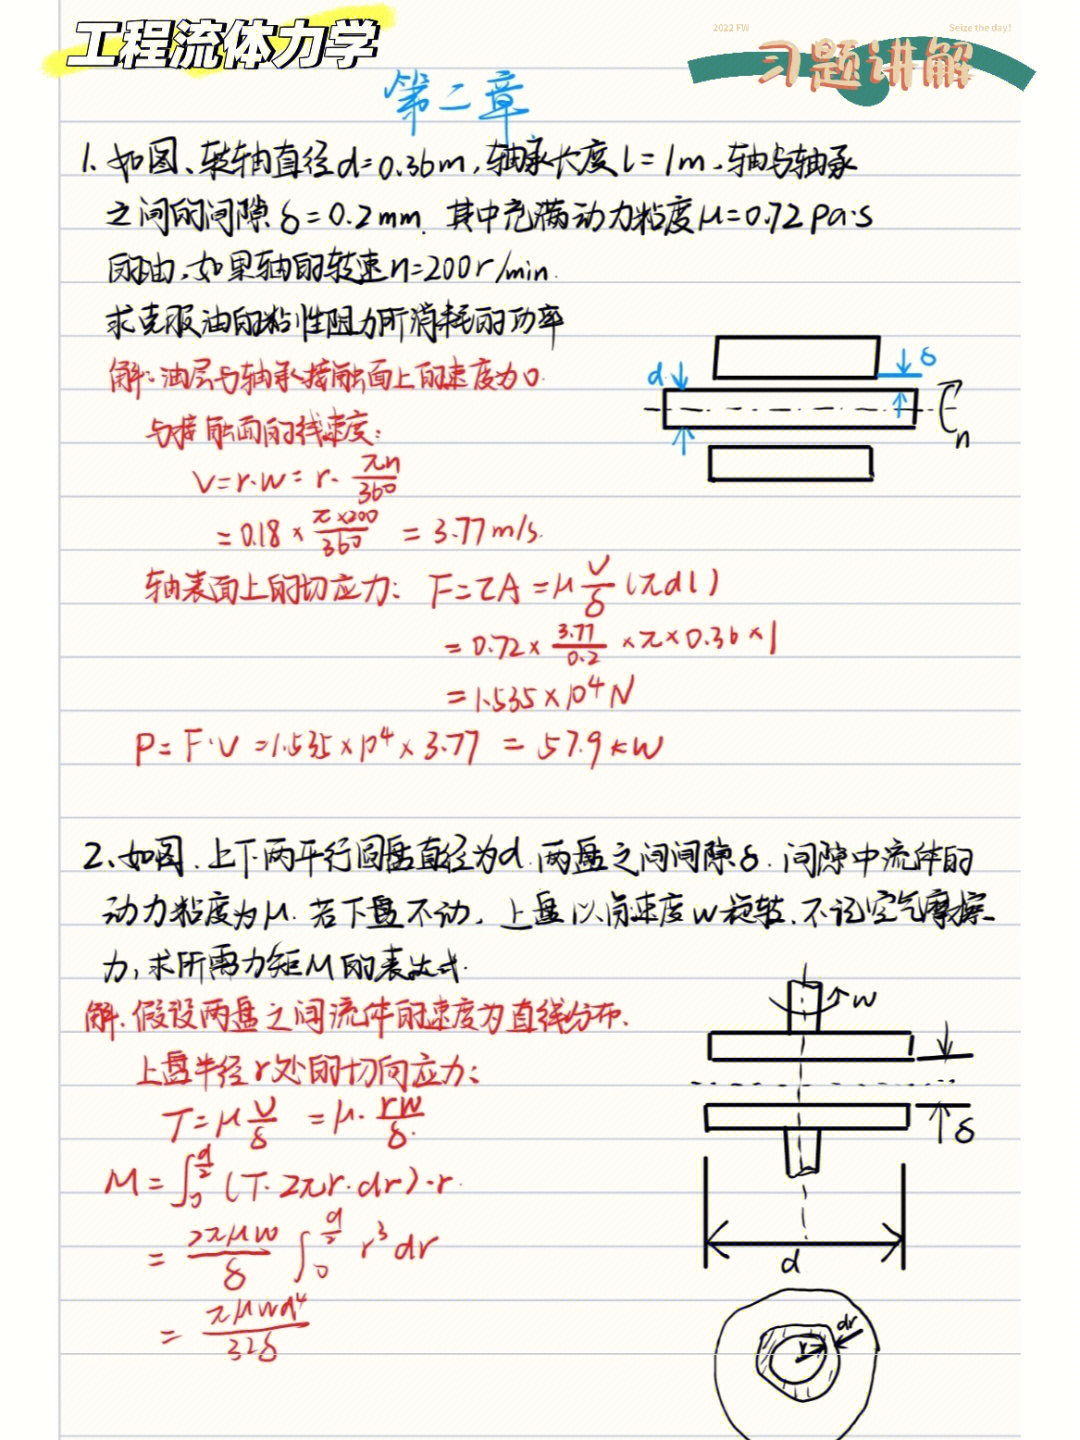 工程流体力学
2022 FW
Seize the day!
习题讲解
第二章
1. 如图、转轴直径d=0.36m,轴承长度l=1m.轴与轴承
之间的间隙δ=0.2mm.其中充满动力粘度μ=0.72Pa·s
的油,如果轴的转速n=200r/min.
求克服油的粘性阻力所消耗的功率
解:油层与轴承接触面上的速度为0.
与接触面的线速度:
V=r·w=r·πn/360
=0.18×π×200/360=3.77m/s.
轴表面上的切应力: F=τA=μV/δ(πdl)
=0.72×3.77/0.2×π×0.36×1
=1.535×10⁴N
P=F·V=1.535×10⁴×3.77=57.9kW
d
δ
n
2、如图.上下两平行圆盘直径为d.两盘之间间隙δ.间隙中流体的
动力粘度为μ.若下盘不动.上盘以角速度w旋转.不记空气摩擦
力,求所需力矩M的表达式.
解.假设两盘之间流体的速度为直线分布.
上盘半径r处的切向应力:
T=μV/δ=μ·rw/δ.
M=∫₀^(d/2)(T·2πr·dr)·r.
=2πμw/δ∫₀^(d/2)r³dr
=πμwd⁴/32δ
w
δ
d
dr
r